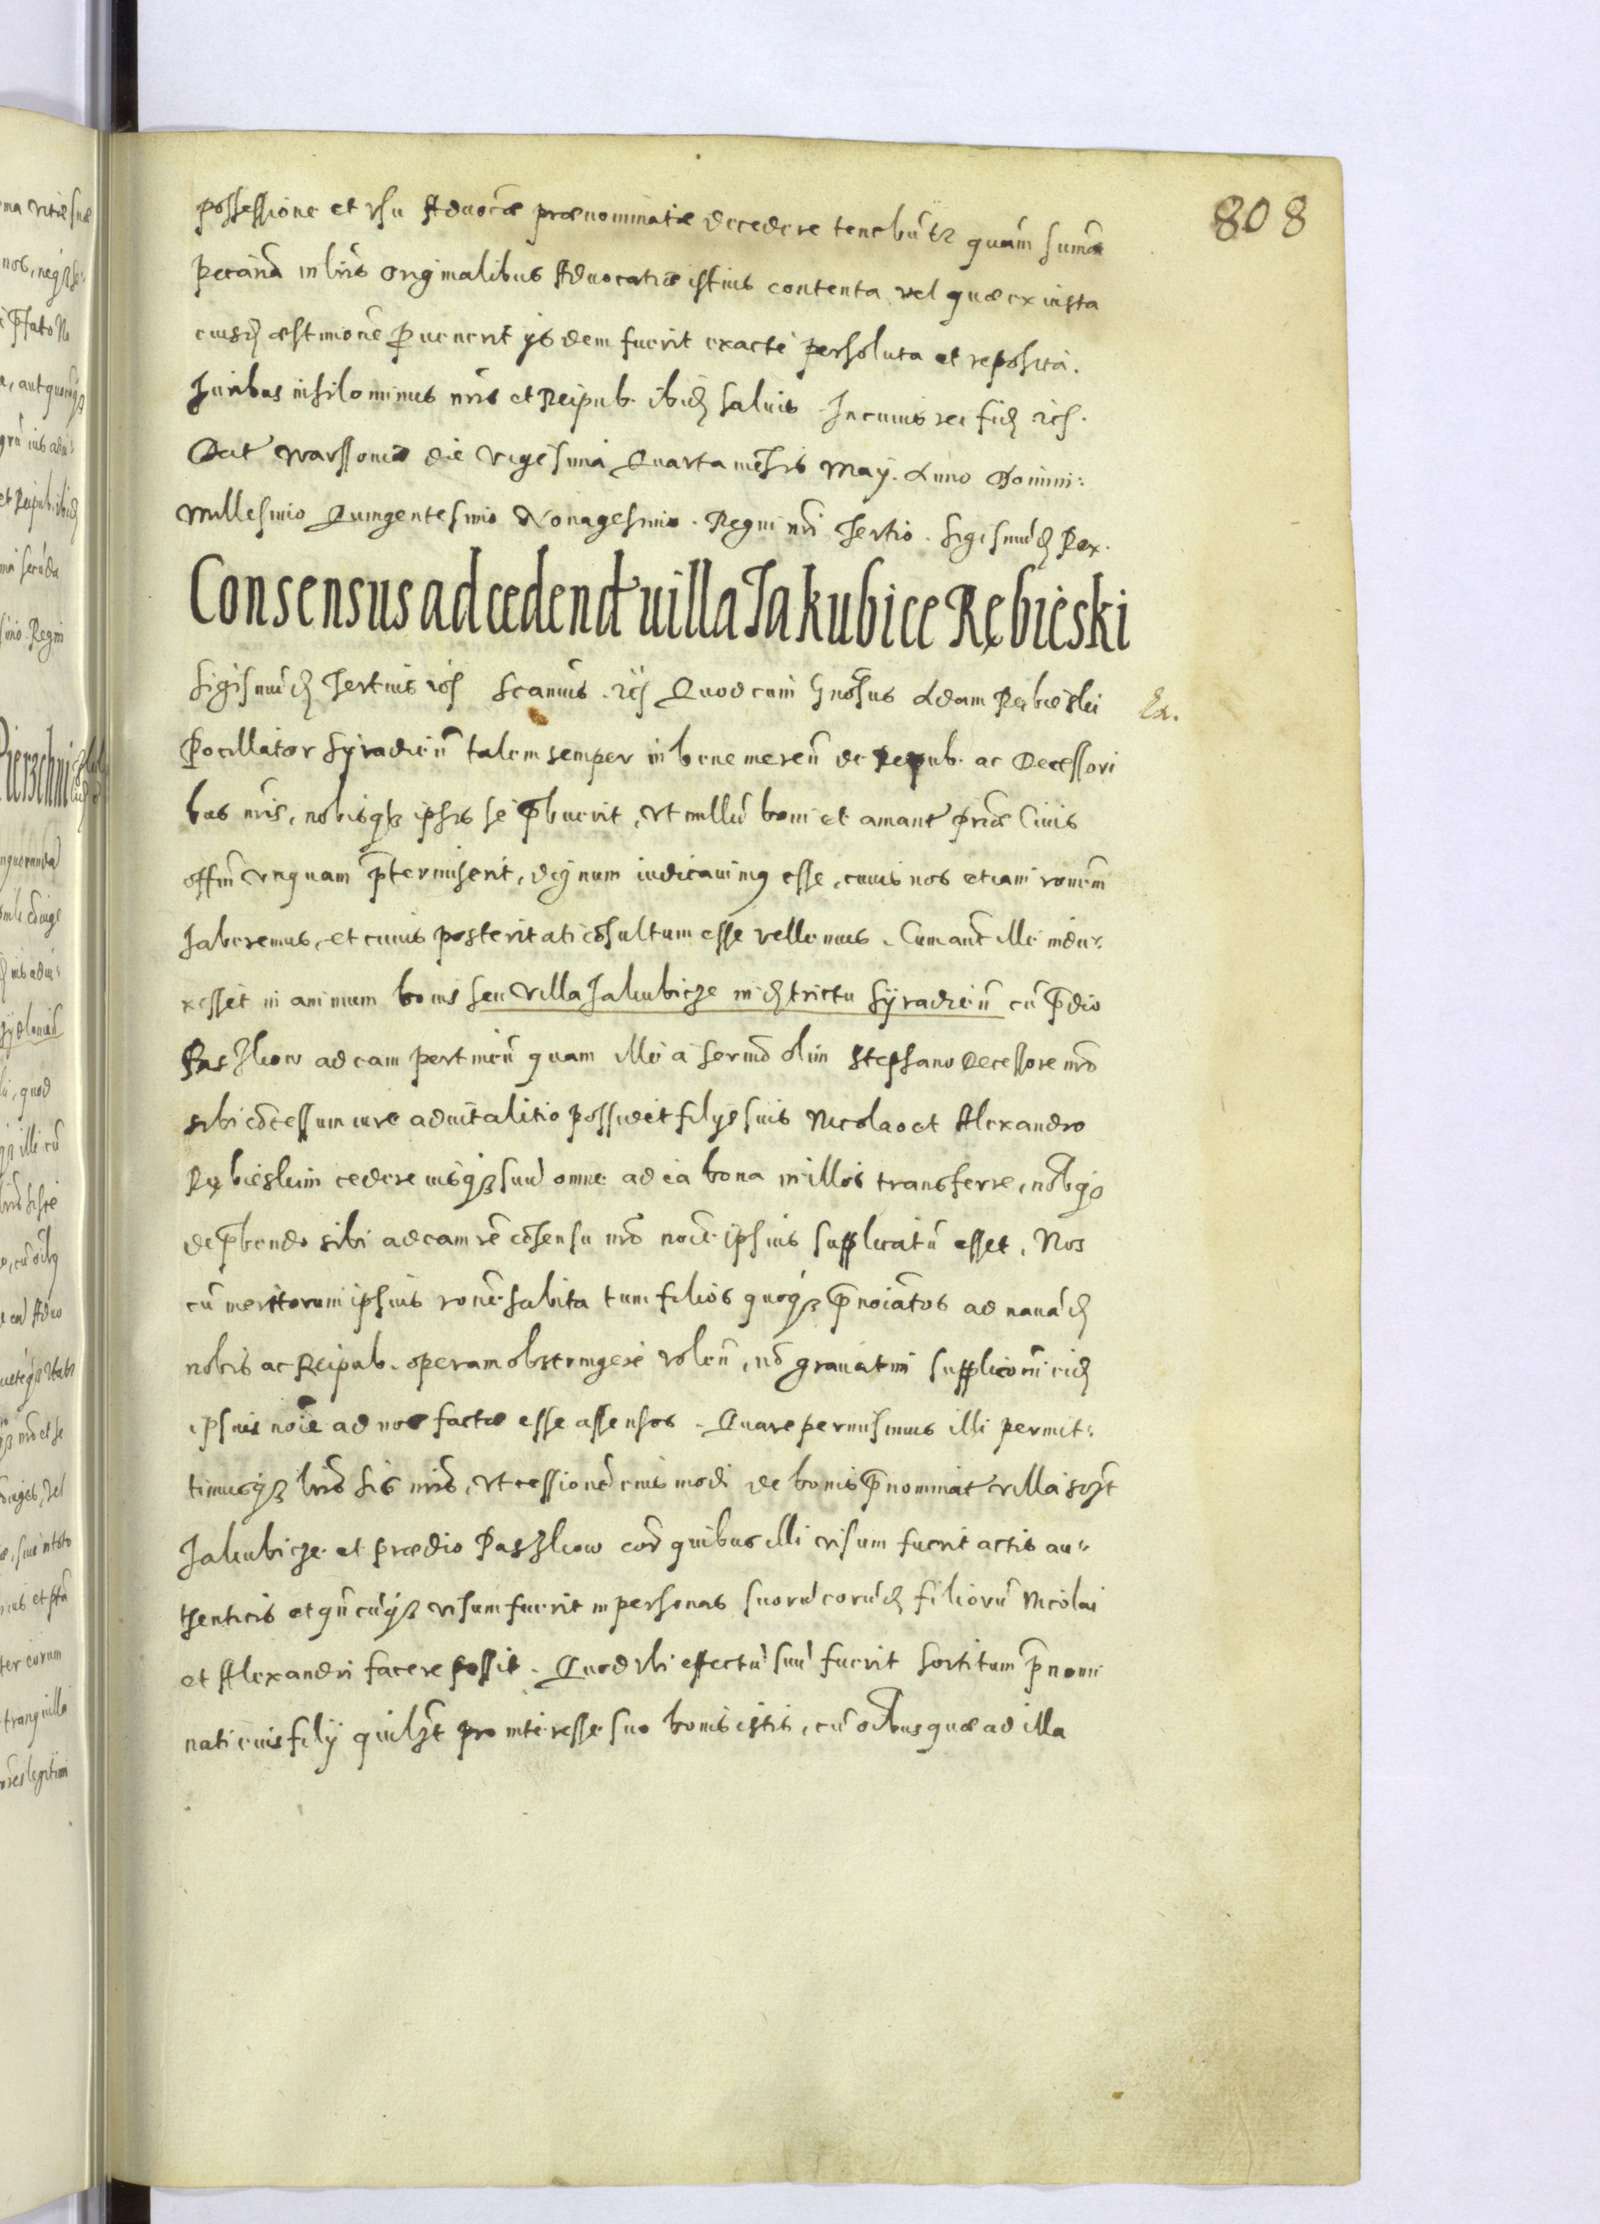 808
possessione et usu Advocae praenominatae decedere tenebuntr quam suma
pecunia in lris originalibus Advocatiae istius contenta vel quae ex iusta
eiusd aestimone pvenerit ijsdem fuerit exacte persoluta et reposita.
Juribus nihilominus nris et Reipub. ibid salvis. In cuius rei fid etc.
Dat Warssoviae die vigesima Quarta mesis Maij. Anno Domini:
Millesimo Quingentesimo Nonagesimo. Regni nri Tertio. Sigismud Rex.
Consensus ad cedend villa Jakubice Rębieski
Sigismud Tertius etc Scamus. etc Quod cum Gnosus Adam Rębieski
Ex.
Pocillator Syradien talem semper in bene meren de Repub. ac Decessori
bus nris, nobisqz ipsis se pbuerit, ut nullu boni et amant priae Civis
offm unquam ptermiserit, dignum iudicavimq esse, cuius nos etiam ronem
haberemus, et cuius posteritati cosultum esse vellemus. Cum aut ille indu:
xesset in animum bonis seu villa Jakubicze in districtu Syradien cu pdio
Paszkow ad eam pertinen quam ille a sermo olim Stephano Decessore nro
sibi cocessum iure advitalitio possidet filijs suis Nicolao et Alexandro
Rębieskim cedere iusqz suu omne ad ea bona in illos transferre, nobqz
de pbendo sibi ad eam re cosensu nro noie ipsius supplicatu esset, Nos
cu meritorum ipsius rone habita tum filios quoqz pnoiatos ad navad
nobis ac Reipub. operam obstringere volen, no gravatim suppliconi eid
ipsius noie ad nos factae esse assensos. Quare permisimus illi permit:
timusqz lris his nris, ut cessione eiusmodi de bonis pnominat villa sczt
Jakubicze et praedio Paszkow cor quibus illi visum fuerit actis au:
thenticis et qucuqz visum fuerit in personas suoru eorud filioru Nicolai
et Alexandri facere possit. Quod ubi effectu suu fuerit sortitum pnomi
nati eius filij quilzt pro interesse suo bonis istis, cu oibus quae ad illa